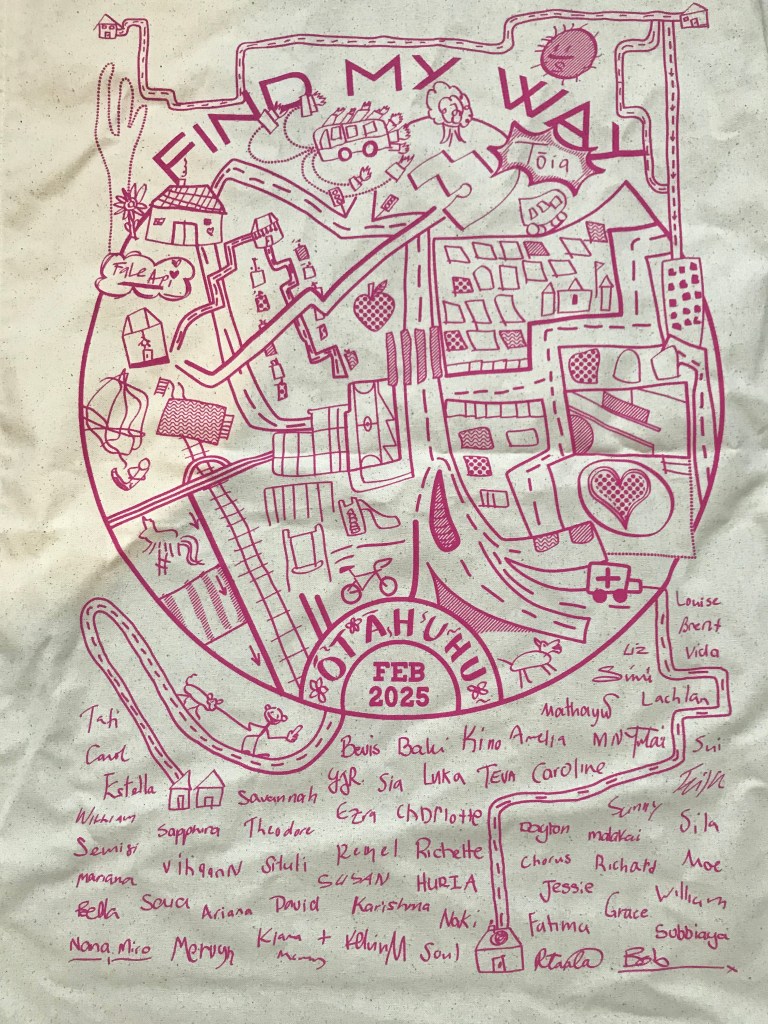 FIND MY WAY
Tōia
Fale Api
ŌTĀHUHU
FEB
2025
Louise
Brent
Vida
Liz
Simi
Lachlan
Tati
Carol
Estella
Bevis Baki Kino Amelia
Sui
Savannah
Sia Luka Teva Caroline
William
Sapphira Theodore Ezra Charlotte
Dayton malakai Sunny Sila
Semisi
Situli Remel Richette
Chorus Richard Moe
manana
SUSAN HURIA
Jessie William
Bella Ariana David Karishma Naki
Fatima Grace Subbiaya
Nana Miro Mervyn Kiana + Mummy Kelvin M Soul
Bob x